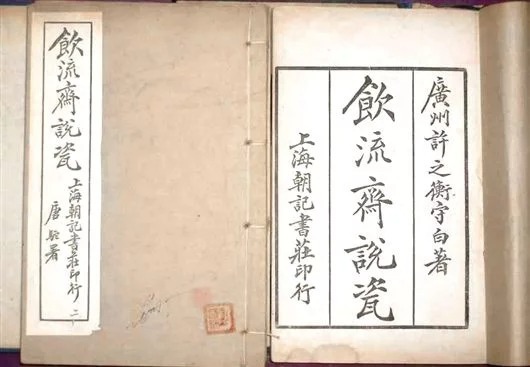 飲流齋說瓷
上海朝記書莊印行 二
唐駝署
廣州許之衡守白著
飲流齋說瓷
上海朝記書莊印行